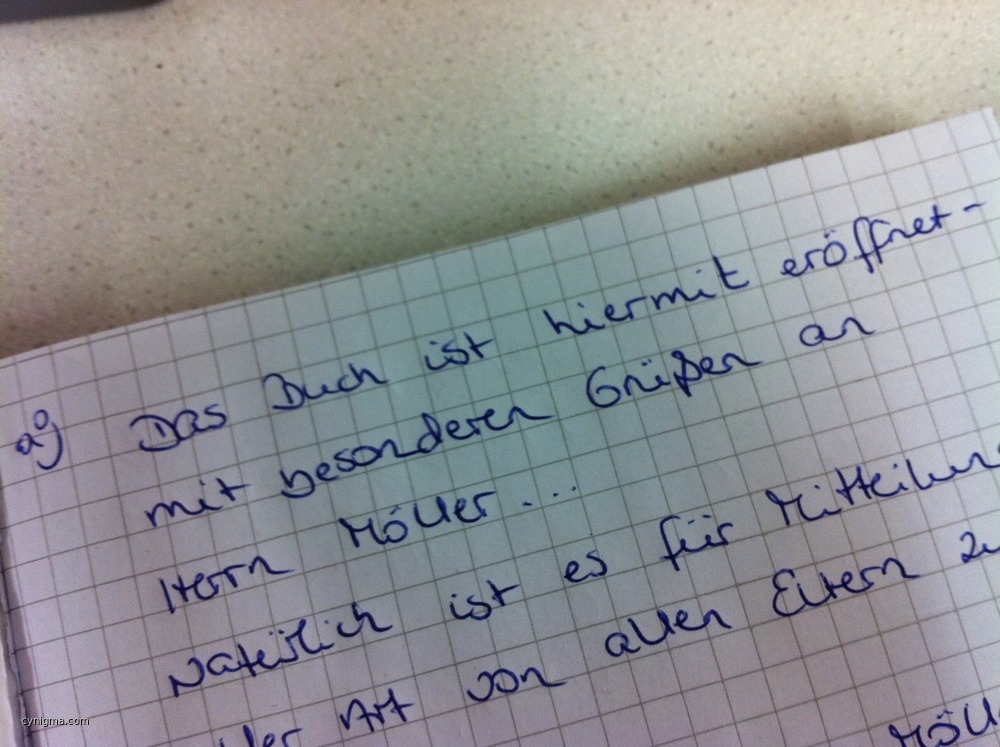 a) Das Buch ist hiermit eröffnet -
mit besonderen Grüßen an
Herrn Möller...
Natürlich ist es für
Art von allen Eltern
cynigma.com